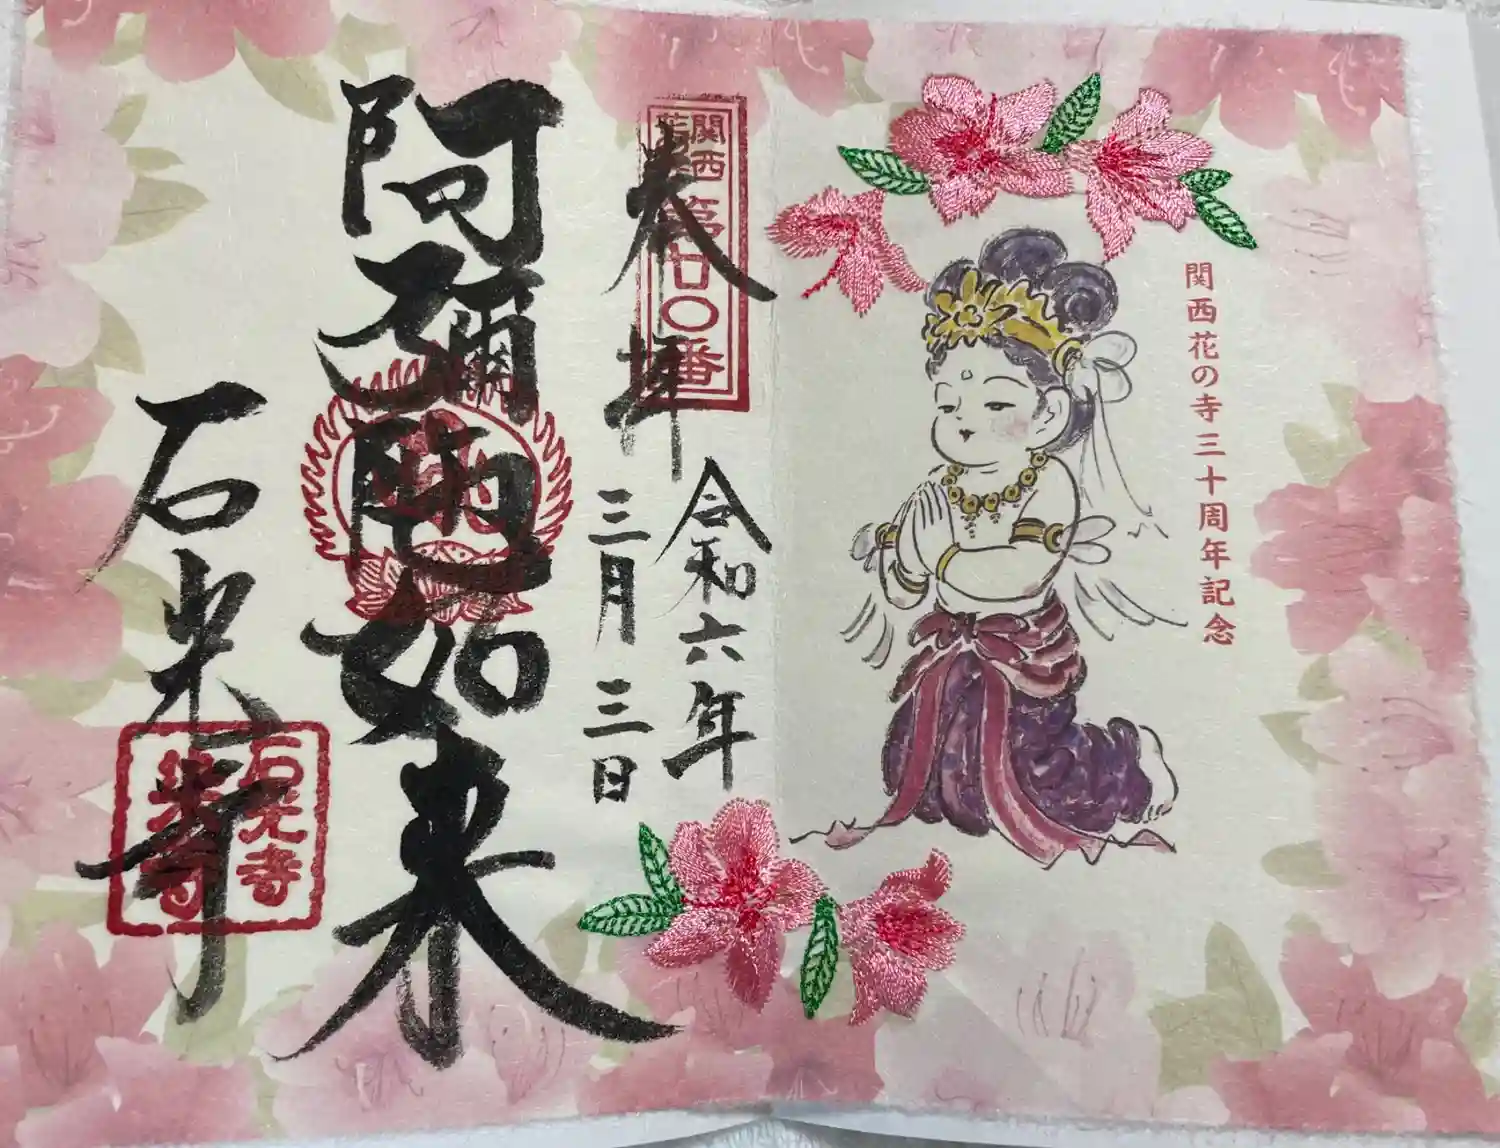 関西花の寺三十周年記念
関西花
第廿〇番
奉拝
令和六年
三月三日
阿彌陀如来
石光寺
石光寺